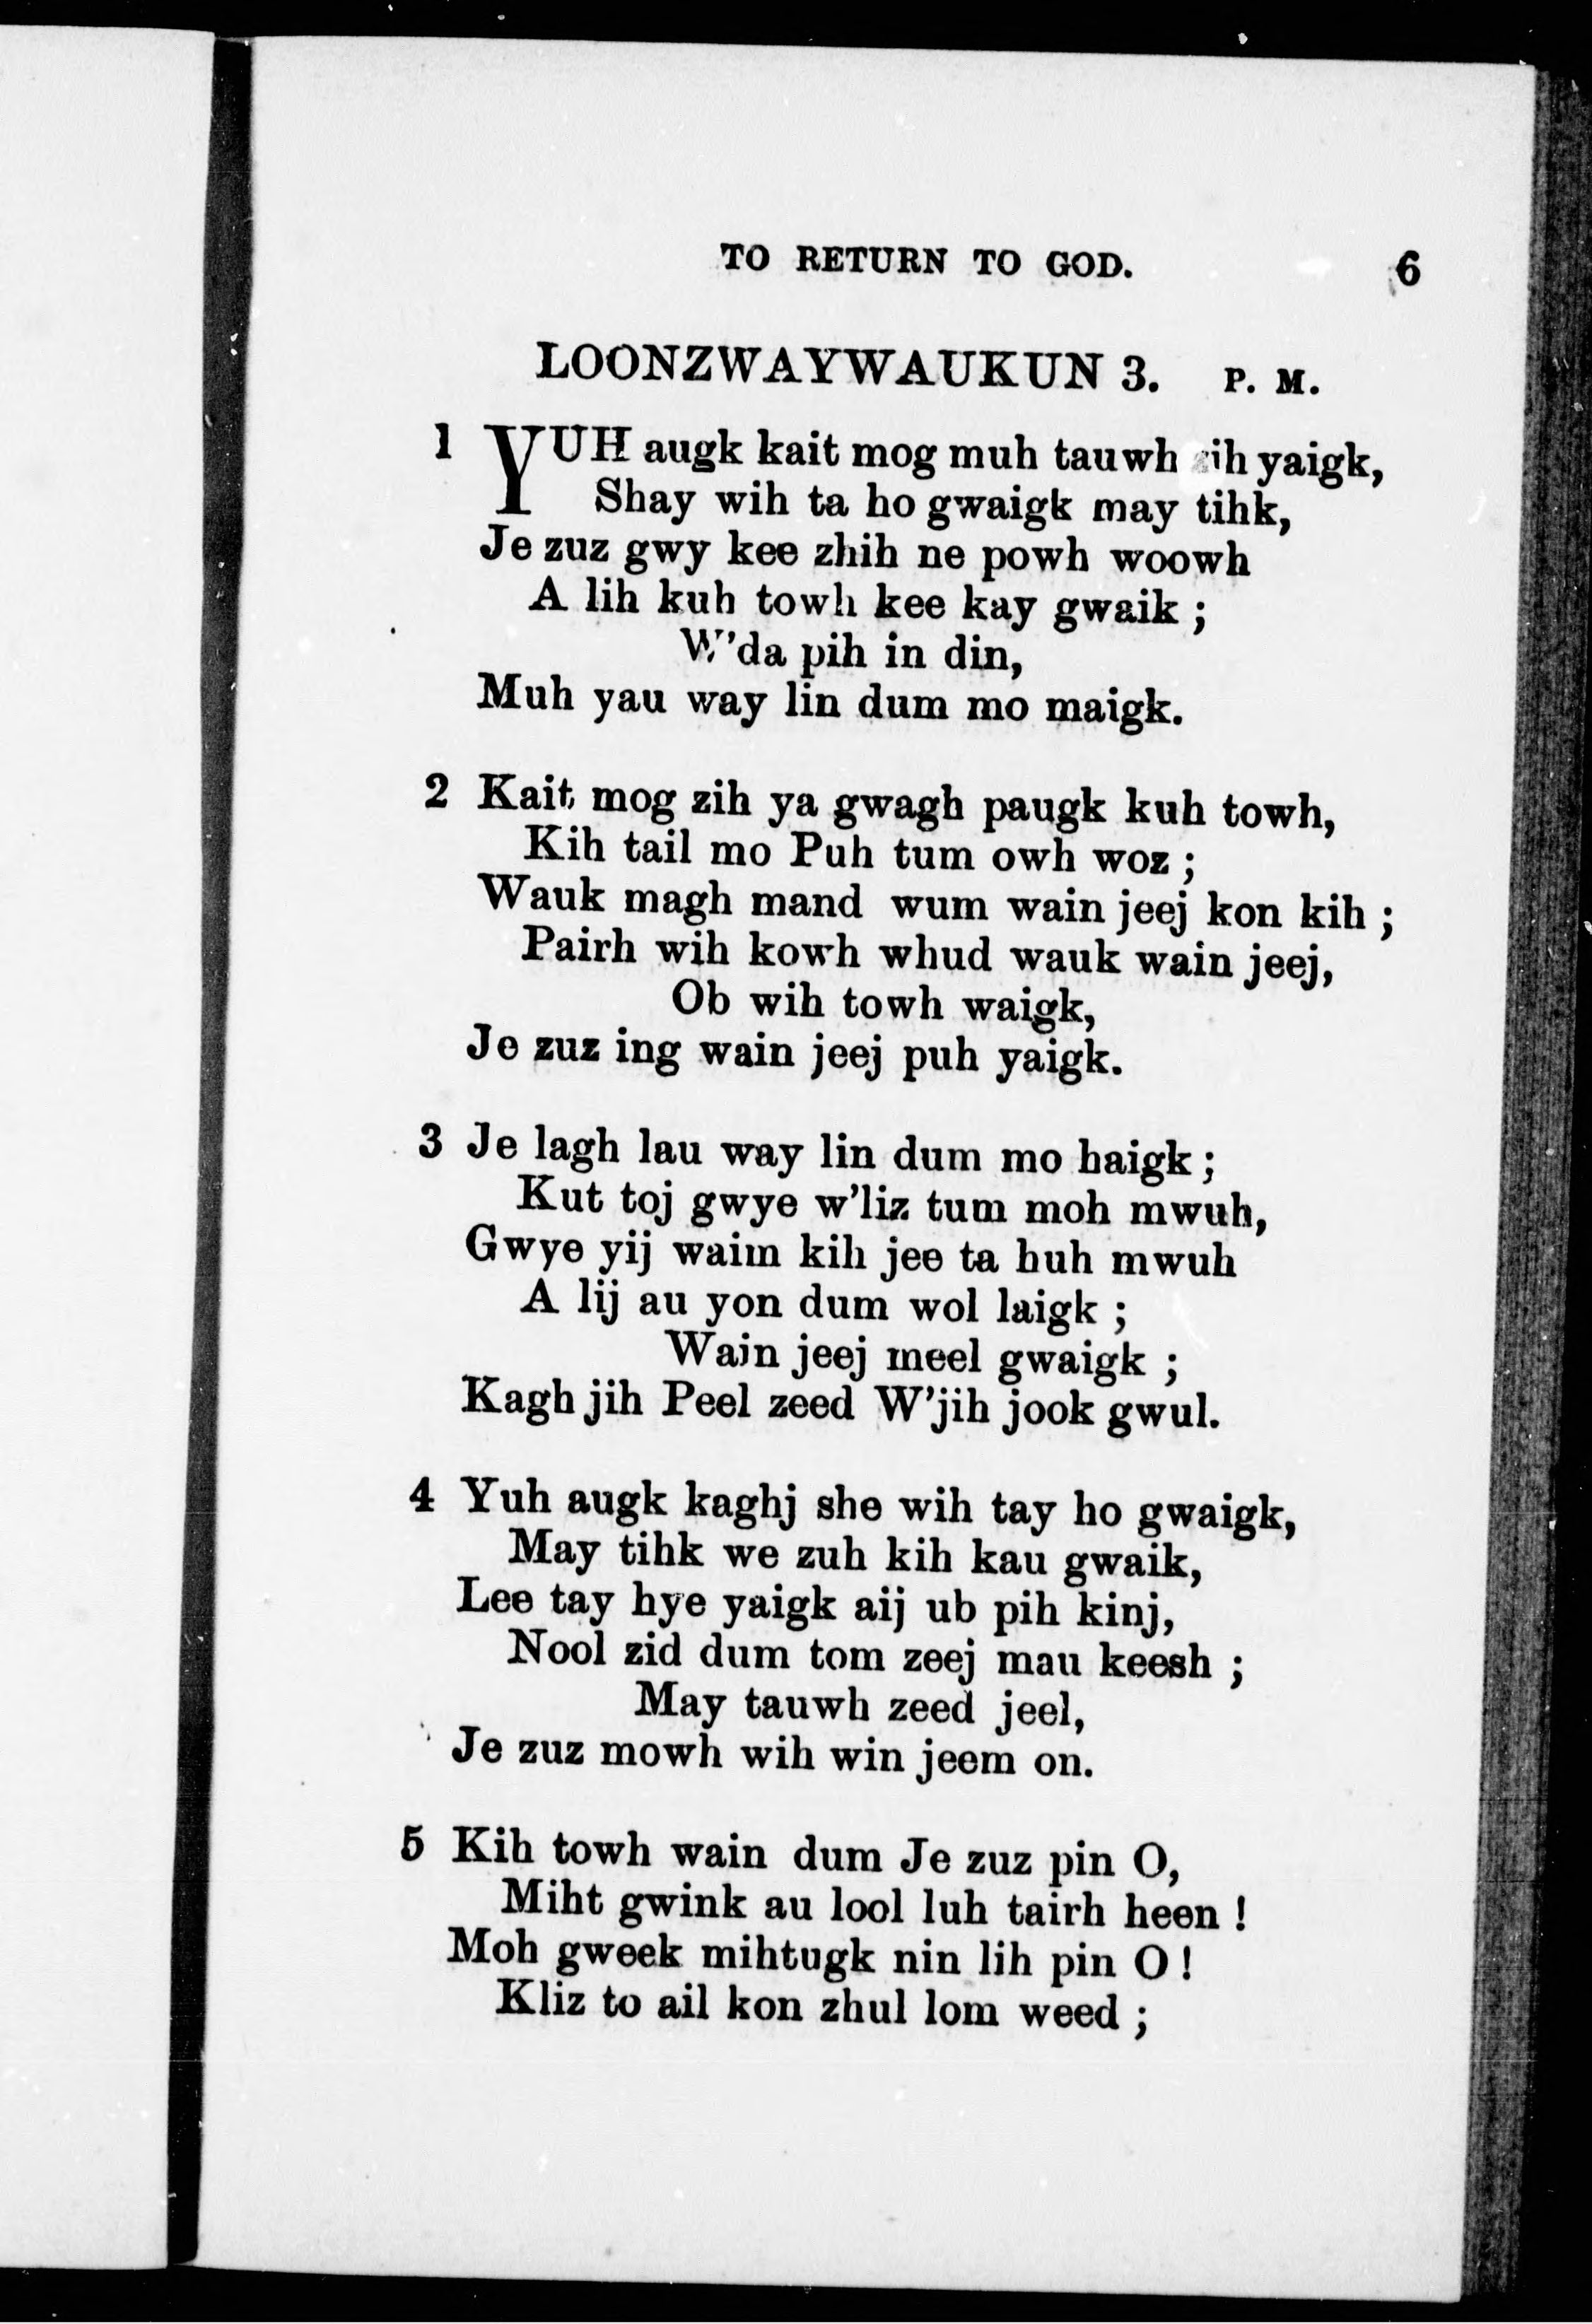 TO RETURN TO GOD. 6
LOONZWAYWAUKUN 3. P. M.
1 YUH augk kait mog muh tauwh zih yaigk,
Shay wih ta ho gwaigk may tihk,
Je zuz gwy kee zhih ne powh woowh
A lih kuh towh kee kay gwaik ;
W'da pih in din,
Muh yau way lin dum mo maigk.
2 Kait mog zih ya gwagh paugk kuh towh,
Kih tail mo Puh tum owh woz ;
Wauk magh mand wum wain jeej kon kih ;
Pairh wih kowh whud wauk wain jeej,
Ob wih towh waigk,
Je zuz ing wain jeej puh yaigk.
3 Je lagh lau way lin dum mo haigk ;
Kut toj gwye w'liz tum moh mwuh,
Gwye yij waim kih jee ta huh mwuh
A lij au yon dum wol laigk ;
Wain jeej meel gwaigk ;
Kagh jih Peel zeed W'jih jook gwul.
4 Yuh augk kaghj she wih tay ho gwaigk,
May tihk we zuh kih kau gwaik,
Lee tay hye yaigk aij ub pih kinj,
Nool zid dum tom zeej mau keesh ;
May tauwh zeed jeel,
Je zuz mowh wih win jeem on.
5 Kih towh wain dum Je zuz pin O,
Miht gwink au lool luh tairh heen !
Moh gweek mihtugk nin lih pin O !
Kliz to ail kon zhul lom weed ;